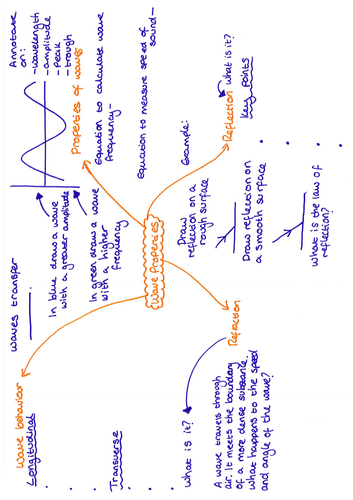 Wave Properties
Properties of waves
Annotate
on:
-wavelength
-amplitude
-peak
-trough
In blue draw a wave
with a greater amplitude
In green draw a wave
with a higher
frequency
Equation to calculate wave
frequency-
Equation to measure speed of
sound-
Example:
Reflection
what is it?
Key points
Draw
reflection on a
rough surface
Draw reflection on
a smooth surface
what is the law of
reflection?
Refraction
what is it?
A wave travels through
air. It meets the boundary
of a more dense substance.
what happens to the speed
and angle of the wave?
Wave behaviour
waves transfer
Longitudinal
Transverse